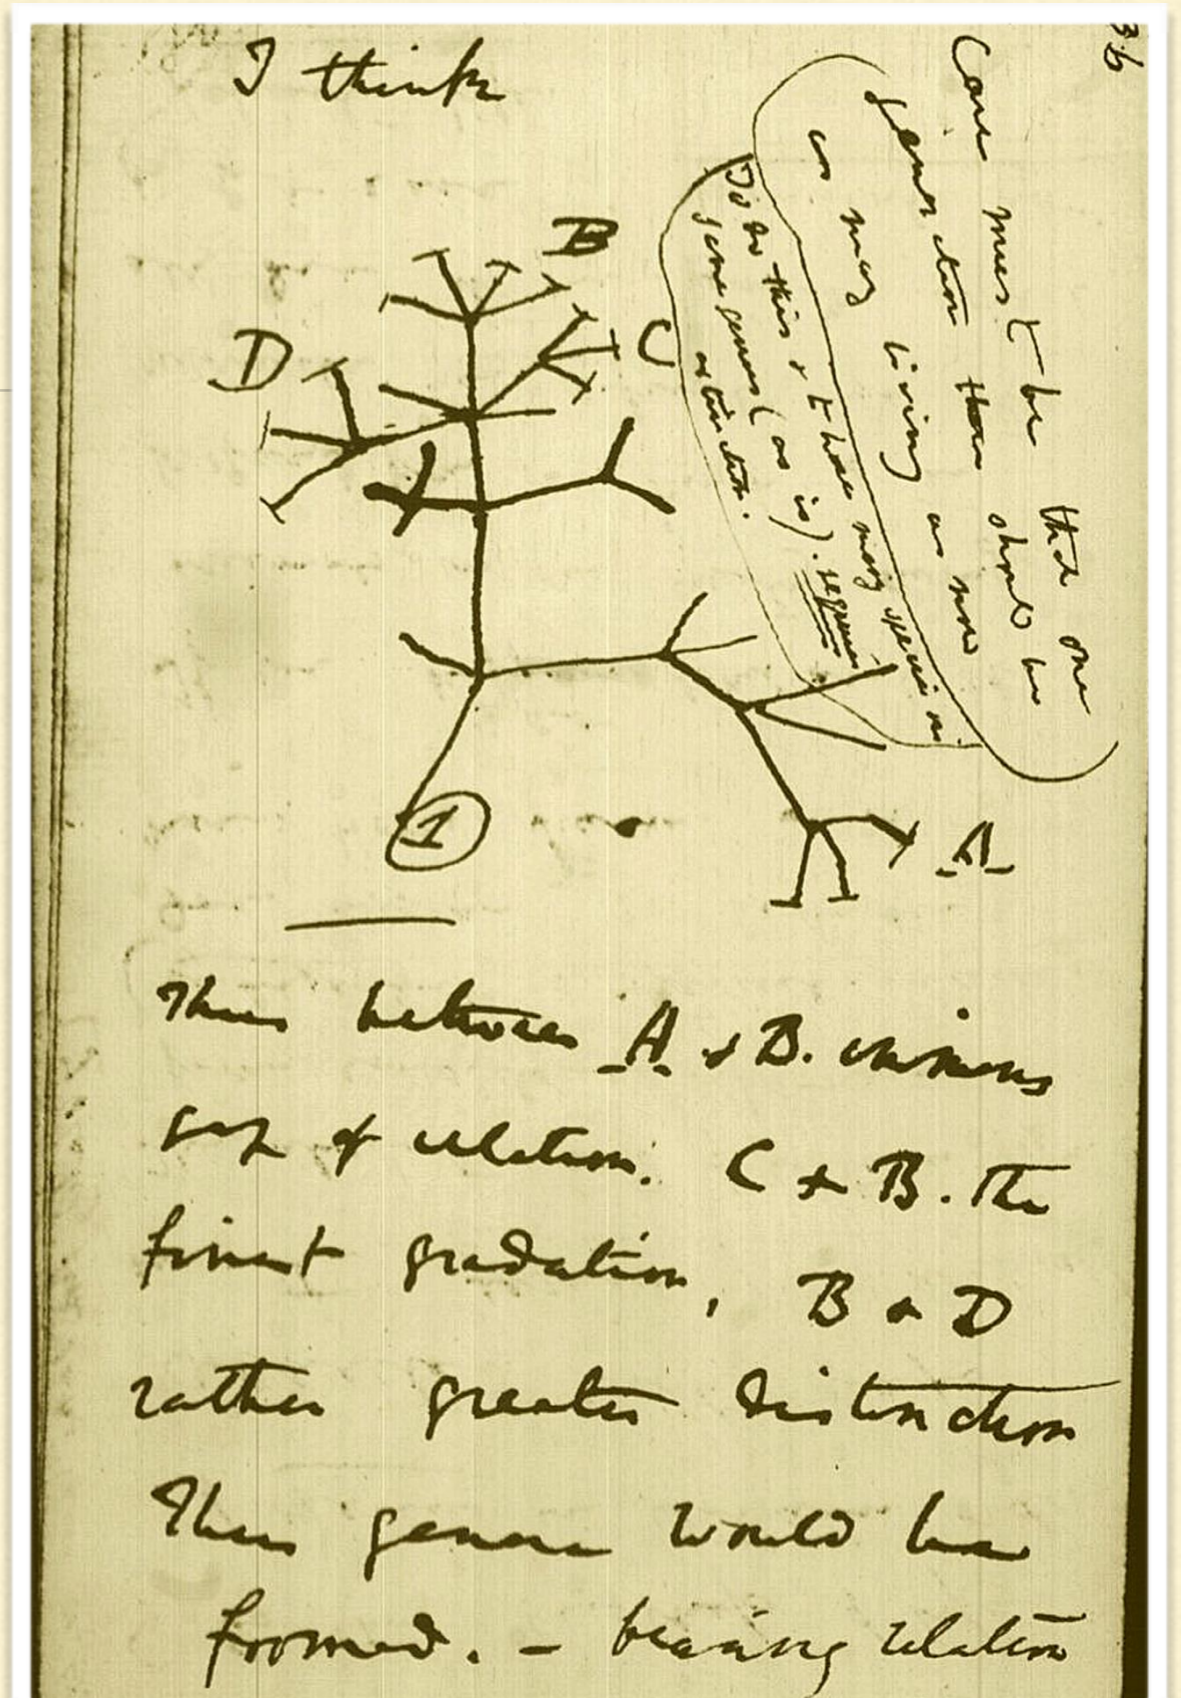 36
I think
Case must be that one
generation then should be
as many living as now
To do this & to have many species in
same genus (as is). requires
extinction.
B
D
C
1
A
Thus between A & B. immens
gap of relation. C & B. The
finest gradation, B & D
rather greater distinction
Thus genera would be
formed. – bearing relation